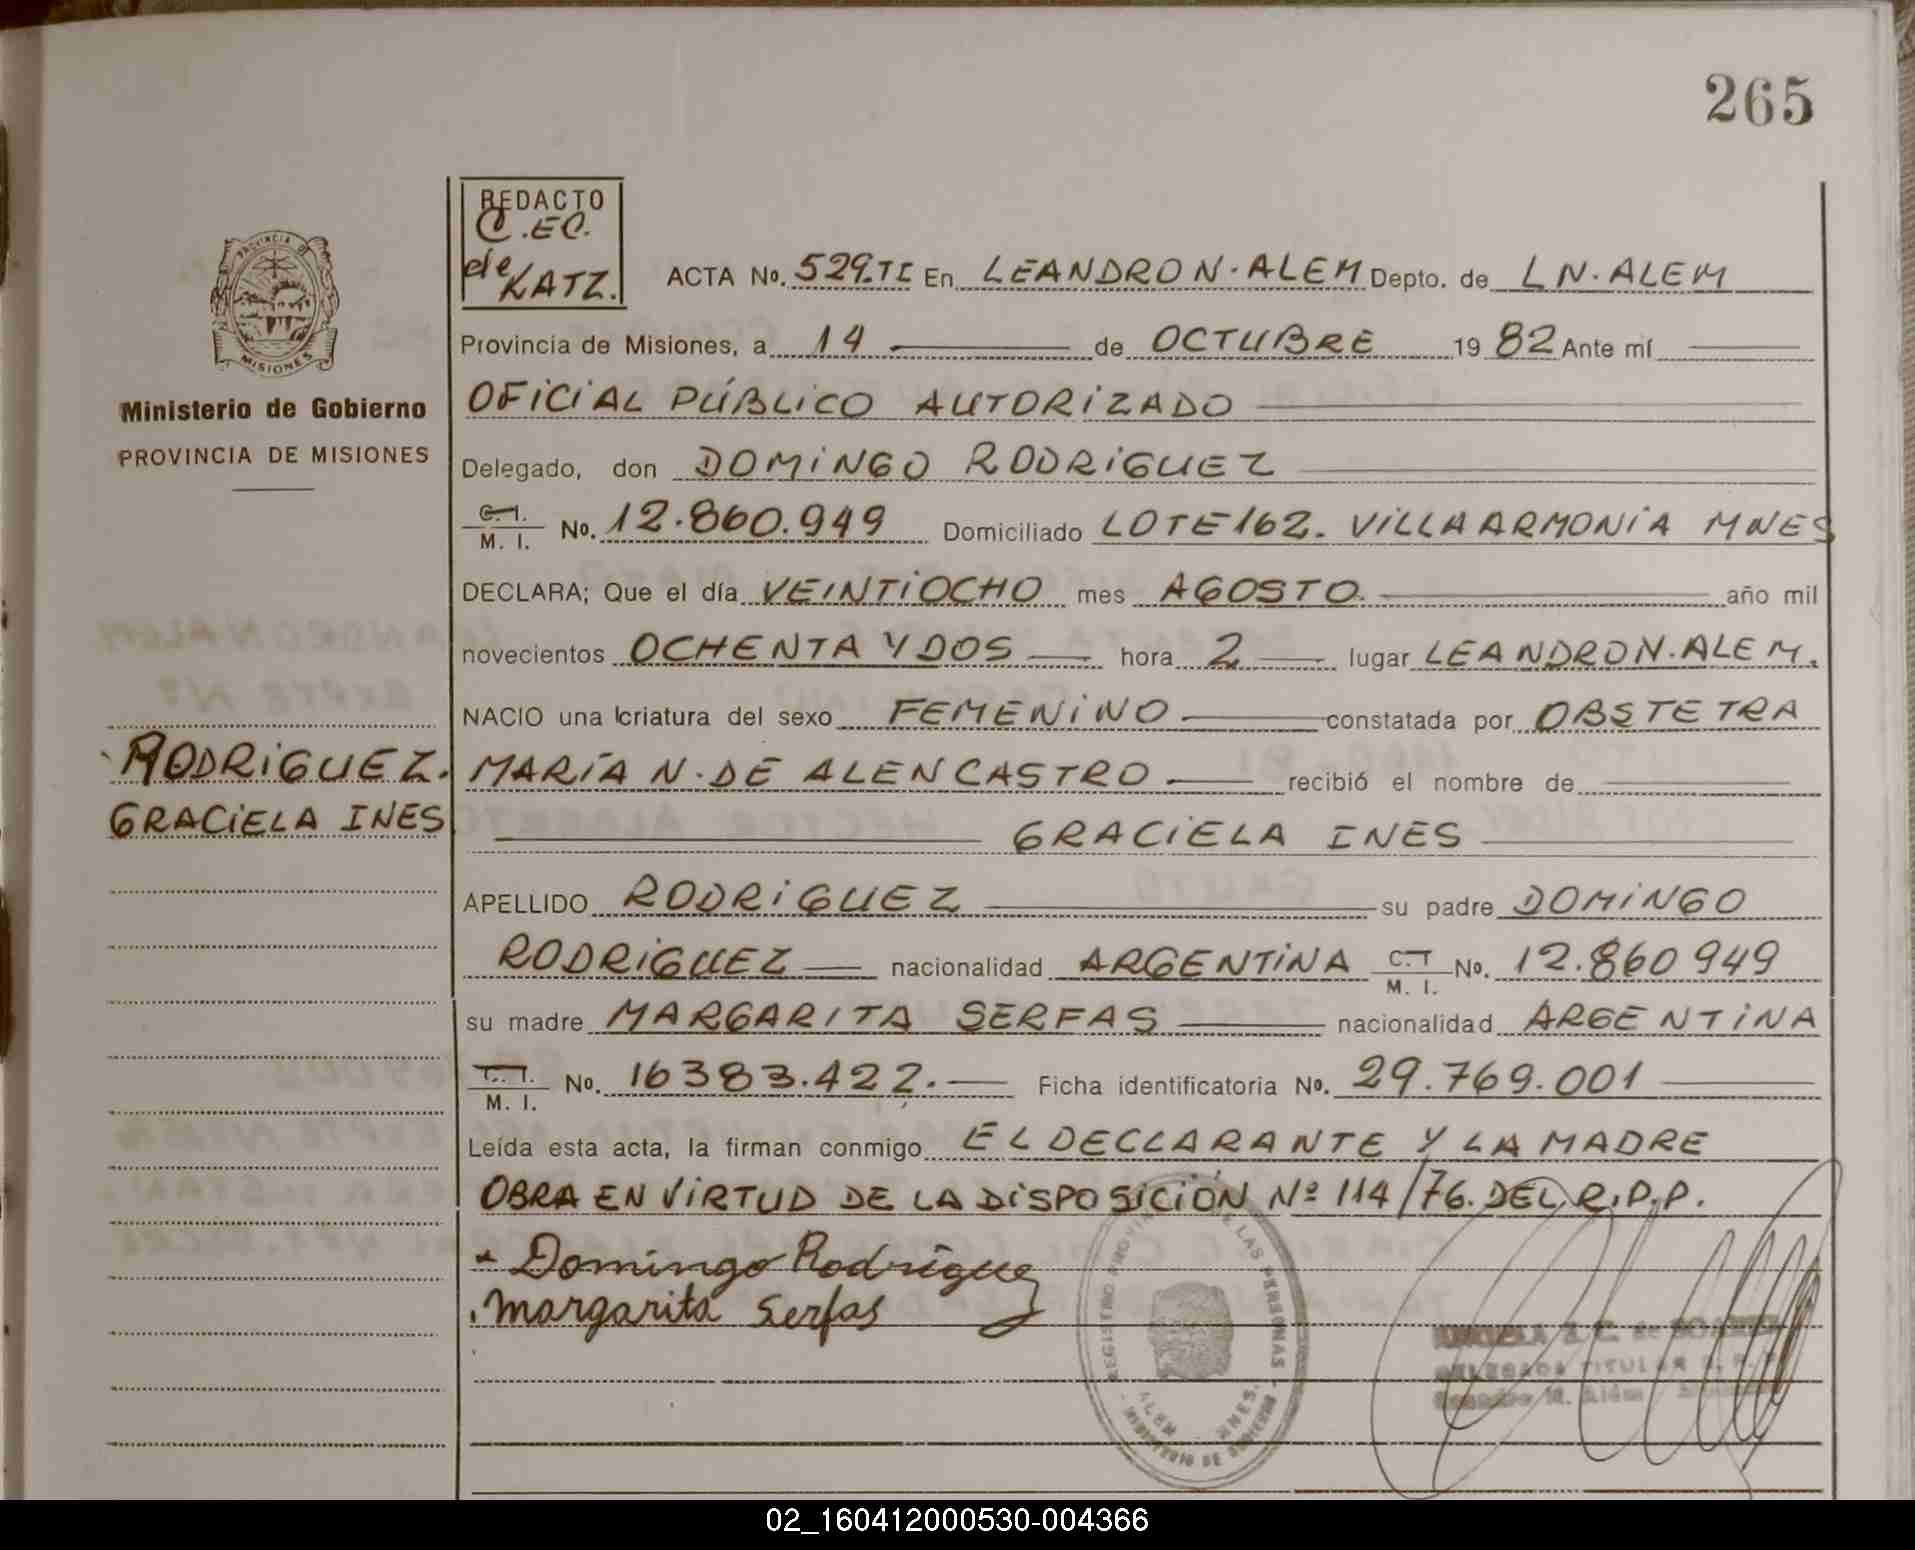 265
REDACTO
C.EC.
de KATZ.
PROVINCIA DE
MISIONES
Ministerio de Gobierno
PROVINCIA DE MISIONES
RODRiGUEZ.
GRACiELA INES
ACTA No. 529.TI En LEANDRO N. ALEM Depto. de L N. ALEM
Provincia de Misiones, a 14 de OCTUBRE 19 82 Ante mí
OFiCiAL PÚBLiCO AUTORiZADO
Delegado, don DOMiNGO RODRiGUEZ
C.I. M. I. No. 12.860.949 Domiciliado LOTE 162. ViLLA ARMONiA MNES
DECLARA; Que el día VEiNTiOCHO mes AGOSTO. año mil
novecientos OCHENTA Y DOS hora 2 lugar LEANDRO N. ALEM.
NACIO una criatura del sexo FEMENiNO constatada por OBSTETRA
MARÍA N. DE ALENCASTRO recibió el nombre de
GRACiELA INES
APELLIDO RODRiGUEZ su padre DOMiNGO
RODRiGUEZ nacionalidad ARGENTiNA C.I. M. I. No. 12.860949
su madre MARGARITA SERFAS nacionalidad ARGENTiNA
C.I. M. I. No. 16383.422. Ficha identificatoria No. 29.769.001
Leída esta acta, la firman conmigo EL DECLARANTE Y LA MADRE
OBRA EN ViRTUD DE LA DiSPOSiCiÓN Nº 114/76. DEL R.P.P.
Domingo Rodriguez
Margarita Serfas
REGISTRO PROVINCIAL DE LAS PERSONAS
ALEM MNES.
MINISTERIO DE GOBIERNO
S. C. de SOAREZ
DELEGADA TITULAR R. P. P.
Leandro N. Alem
02_160412000530-004366